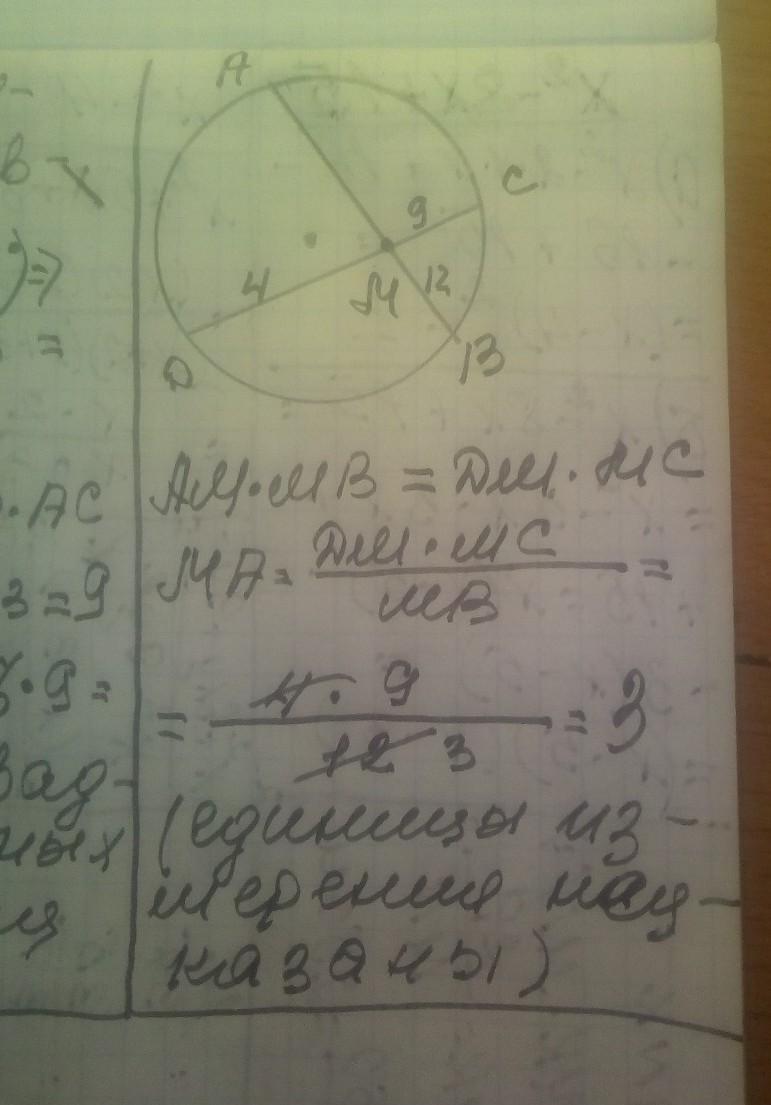 A
C
9
4
M 12
D
B
AM·MB = DM·MC
MA = DM·MC / MB =
= 4·9 / 12 3 = 3
(единицы из-
мерения неу-
казаны)
·AC
3=9
·9=
вад-
ных